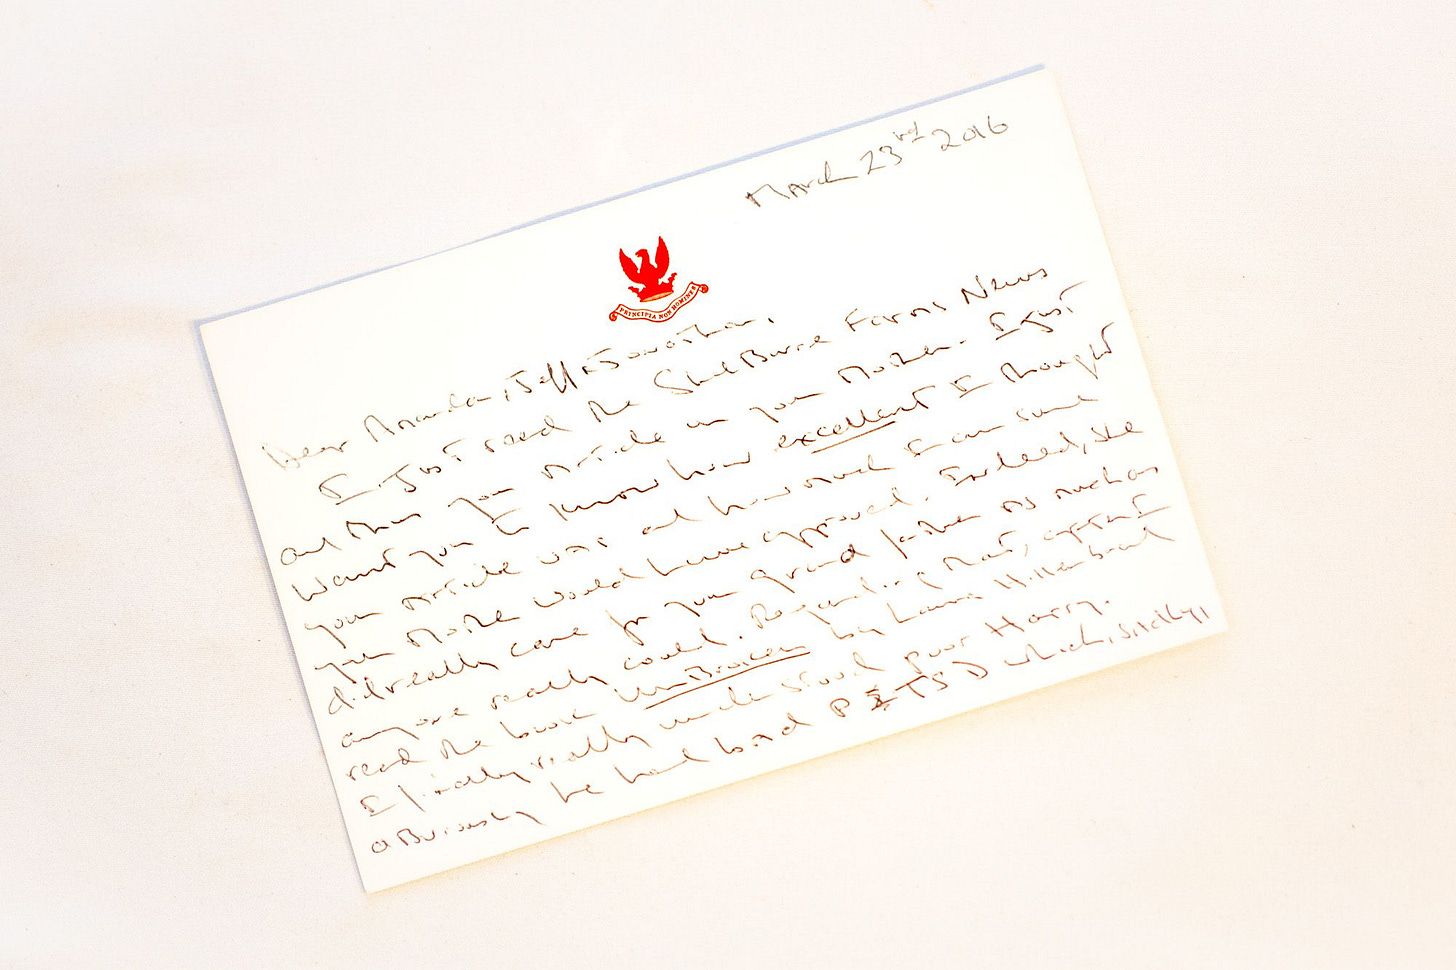 March 23rd 2016
PRINCIPIA NON HOMINES
Dear Amanda, Jeff & Jonathan,
I just read the Shelburne Farms News
and then your article on your Mother. I just
want you to know how excellent I thought
your article was and how much I am sure
your Mother would have approved. Indeed, she
did really care for your grand father as much as
anyone really could. Regarding that, after I
read the book Unbroken by Laura Hillenbrand
I finally really understood poor Harry.
obviously he had bad PTSD which, sadly,